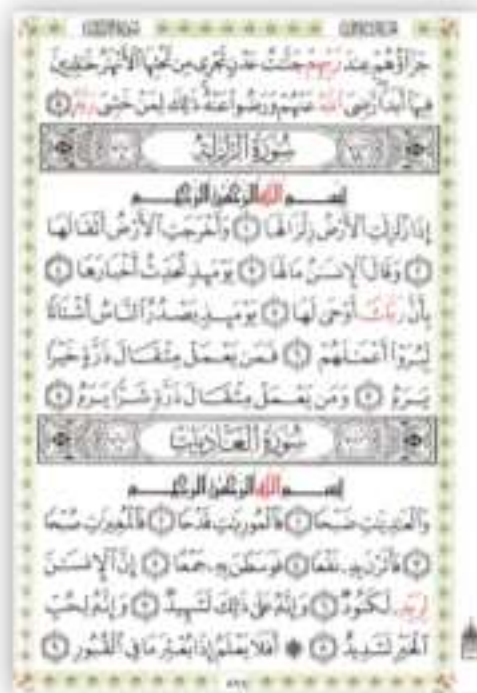 جَزَاؤُهُمْ عِندَ رَبِّهِمْ جَنَّٰتُ عَدْنٍ تَجْرِي مِن تَحْتِهَا ٱلْأَنْهَٰرُ خَٰلِدِينَ
فِيهَآ أَبَدًا رَّضِيَ ٱللَّهُ عَنْهُمْ وَرَضُوا۟ عَنْهُ ذَٰلِكَ لِمَنْ خَشِيَ رَبَّهُۥ ٨
سُورَةُ الزَّلْزَلَةِ
بِسْمِ اللَّهِ الرَّحْمَٰنِ الرَّحِيمِ
إِذَا زُلْزِلَتِ ٱلْأَرْضُ زِلْزَالَهَا ١ وَأَخْرَجَتِ ٱلْأَرْضُ أَثْقَالَهَا
٢ وَقَالَ ٱلْإِنسَٰنُ مَا لَهَا ٣ يَوْمَئِذٍ تُحَدِّثُ أَخْبَارَهَا ٤
بِأَنَّ رَبَّكَ أَوْحَىٰ لَهَا ٥ يَوْمَئِذٍ يَصْدُرُ ٱلنَّاسُ أَشْتَاتًا
لِّيُرَوْا۟ أَعْمَٰلَهُمْ ٦ فَمَن يَعْمَلْ مِثْقَالَ ذَرَّةٍ خَيْرًا
يَرَهُۥ ٧ وَمَن يَعْمَلْ مِثْقَالَ ذَرَّةٍ شَرًّا يَرَهُۥ ٨
سُورَةُ العَادِيَاتِ
بِسْمِ اللَّهِ الرَّحْمَٰنِ الرَّحِيمِ
وَٱلْعَٰدِيَٰتِ ضَبْحًا ١ فَٱلْمُورِيَٰتِ قَدْحًا ٢ فَٱلْمُغِيرَٰتِ صُبْحًا
٣ فَأَثَرْنَ بِهِۦ نَقْعًا ٤ فَوَسَطْنَ بِهِۦ جَمْعًا ٥ إِنَّ ٱلْإِنسَٰنَ
لِرَبِّهِۦ لَكَنُودٌ ٦ وَإِنَّهُۥ عَلَىٰ ذَٰلِكَ لَشَهِيدٌ ٧ وَإِنَّهُۥ لِحُبِّ
ٱلْخَيْرِ لَشَدِيدٌ ٨ ۞ أَفَلَا يَعْلَمُ إِذَا بُعْثِرَ مَا فِي ٱلْقُبُورِ ٩